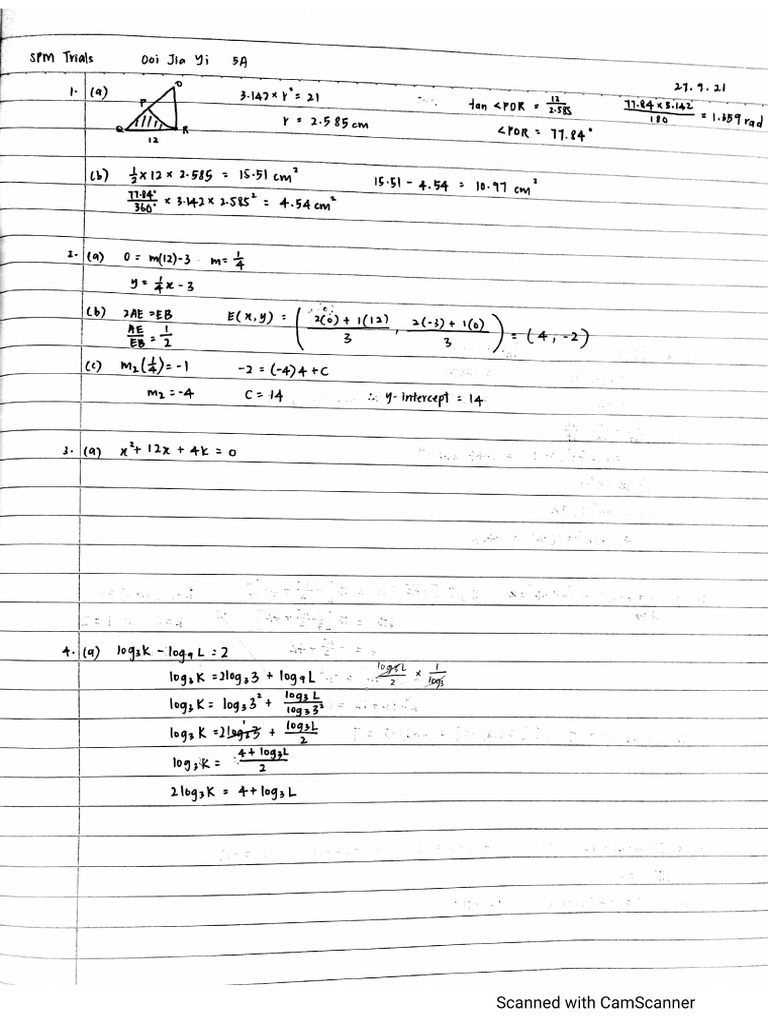 SPM Trials Ooi Jia Yi 5A
27.9.21
1. (a) O P Q R 12
3.142 × r² = 21
r = 2.585 cm
tan ∠POR = 12/2.585
∠POR = 77.84°
77.84 × 3.142 / 180 = 1.359 rad
(b) ½ × 12 × 2.585 = 15.51 cm²
77.84°/360° × 3.142 × 2.585² = 4.54 cm²
15.51 - 4.54 = 10.97 cm²
2. (a) 0 = m(12) - 3 m = 1/4
y = 1/4 x - 3
(b) 2AE = EB
AE/EB = 1/2
E(x, y) = ( (2(0) + 1(12))/3 , (2(-3) + 1(0))/3 ) = (4, -2)
(c) m₂(1/4) = -1 -2 = (-4)4 + C
m₂ = -4 C = 14 ∴ y-intercept = 14
3. (a) x² + 12x + 4k = 0
4. (a) log₃K - log₉L = 2
log₃K = 2log₃3 + log₉L
log₃L/2 × 1/log₃
log₃K = log₃3² + log₃L/log₃3²
log₃K = 2log₃3 + log₃L/2
log₃K = (4 + log₃L)/2
2log₃K = 4 + log₃L
Scanned with CamScanner